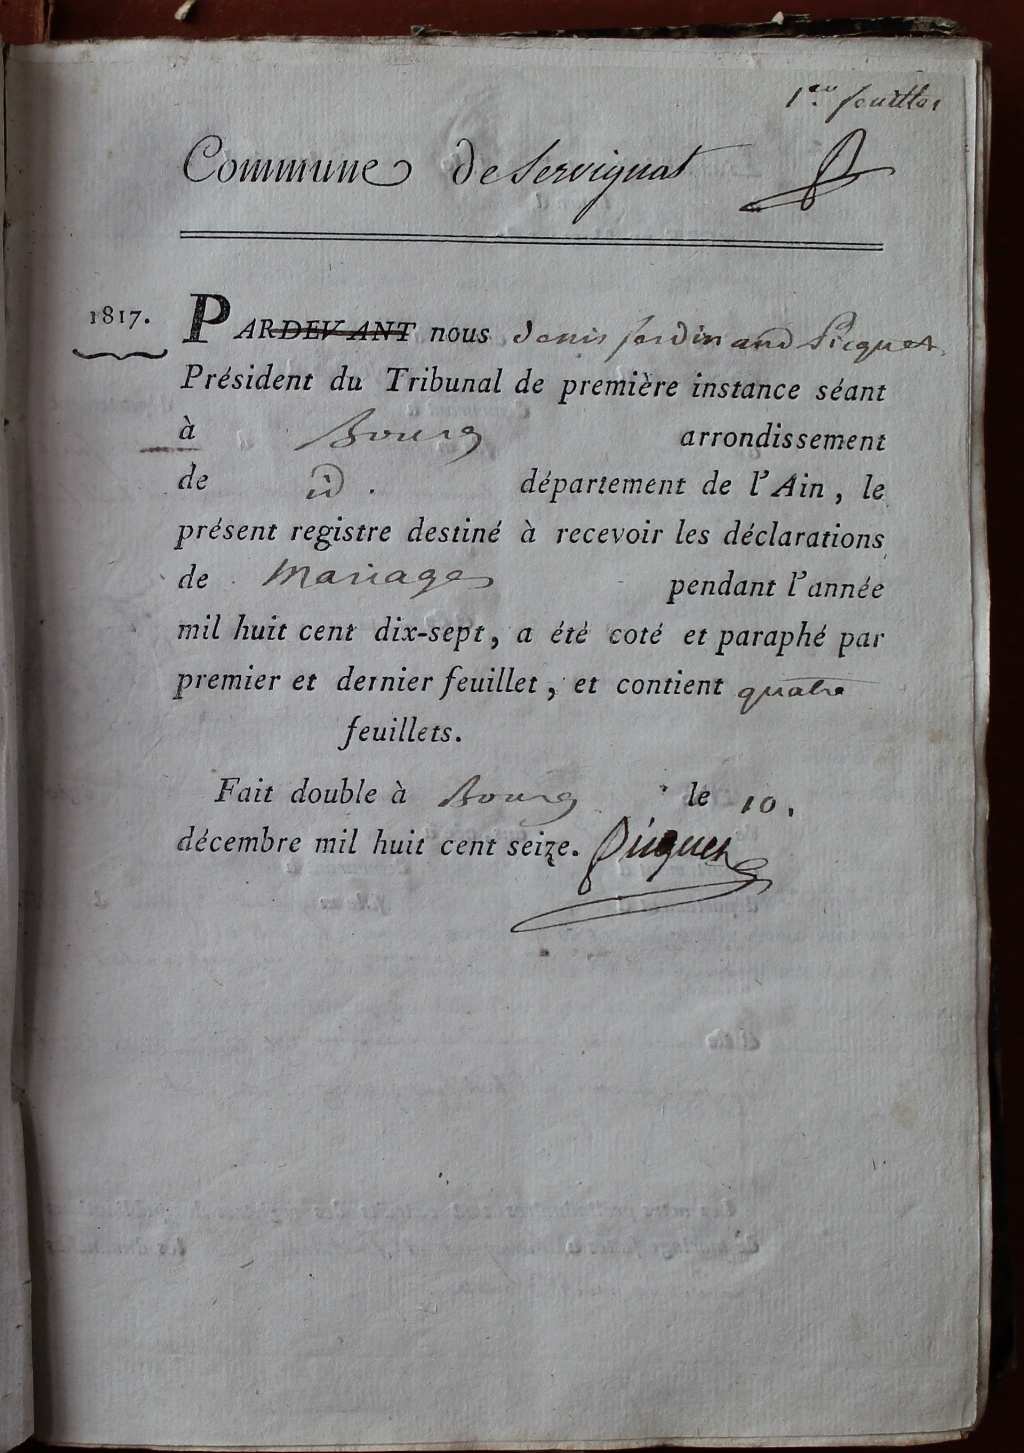 1er feuillet
Commune de Servignat
1817.
PARDEVANT nous denis ferdinand Picquet
Président du Tribunal de première instance séant
à Bourg arrondissement
de id. département de l'Ain, le
présent registre destiné à recevoir les déclarations
de Mariages pendant l'année
mil huit cent dix-sept, a été coté et paraphé par
premier et dernier feuillet, et contient quatre
feuillets.
Fait double à Bourg le 10.
décembre mil huit cent seize. Picquet